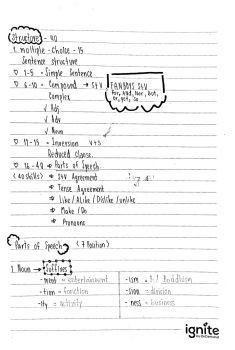 Structure - 40
1. multiple-choice - 15
Sentence structure
1-5 = Simple Sentence
6-10 = Compound → S+V FANBOYS S+V
For, And, Nor, But,
Or, yet, So
Complex
✓ Adj
✓ Adv
✓ Noun
11-15 = Inversion V+S
Reduced Clause.
16-40 → Parts of Speech
(40 skills) → S+V Agreement
→ Tense Agreement
→ Like / Alike / Dislike / unlike
→ Make / Do
→ Pronouns
Parts of Speech (7 Position)
1. Noun → Suffixes
-ment = entertainment -ism = Buddhism
-tion = function -sion = division
-ity = activity -ness = business
ignite